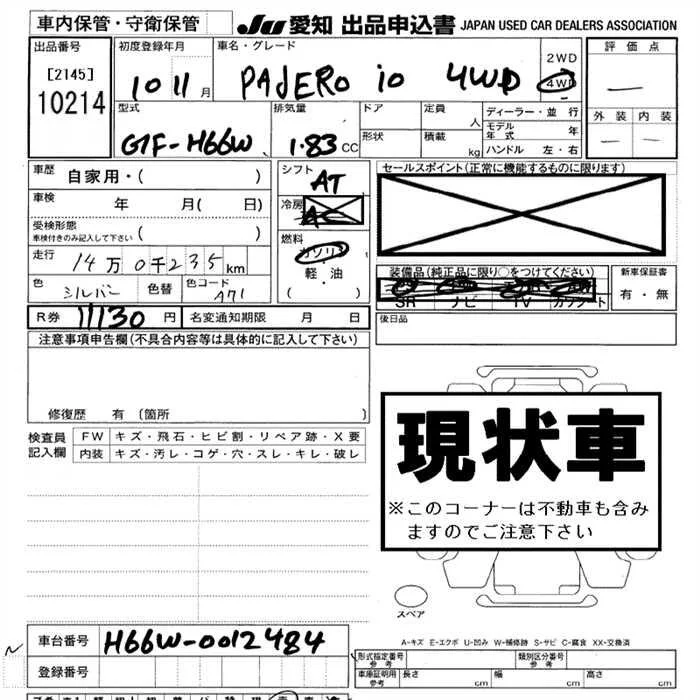 車内保管・守衛保管
JU 愛知 出品申込書 JAPAN USED CAR DEALERS ASSOCIATION
出品番号 初度登録年月 車名・グレード 評価点
[2145] 10214 10 11月 PAJERO io 4WD 2WD 4WD —
型式 排気量 ドア 定員 人 ディーラー・並行 外装 内装
GF-H66W 1.83 CC 形状 積載 kg モデル年式 年 — —
ハンドル 左・右
車歴 自家用・( ) シフト AT セールスポイント(正常に機能するものに限ります)
車検 年 月( 日) 冷房 AC
受検形態 車検付きのみ記入して下さい ( )
燃料 ガソリン
走行 14万0千235km 軽・油 装備品(純正品に限り○をつけてください) 新車保証書
色 シルバー 色替 色コード A71 ( ) SR ナビ TV カワシート 有・無
R券 11130 円 名変通知期限 月 日 後日品
注意事項申告欄(不具合内容等は具体的に記入して下さい)
修復歴 有 (箇所 )
検査員記入欄 FW キズ・飛石・ヒビ割・リペア跡・X要
内装 キズ・汚レ・コゲ・穴・スレ・キレ・破レ
現状車
※このコーナーは不動車も含みますのでご注意下さい
スペア
A-キズ E-エクボ U-凹み W-補修跡 S-サビ C-腐食 XX-交換済
車台番号 H66W-0012484
形式指定番号 参考 類別区分番号 参考
登録番号 車庫証明用 参考 長さ cm 幅 cm 高さ cm